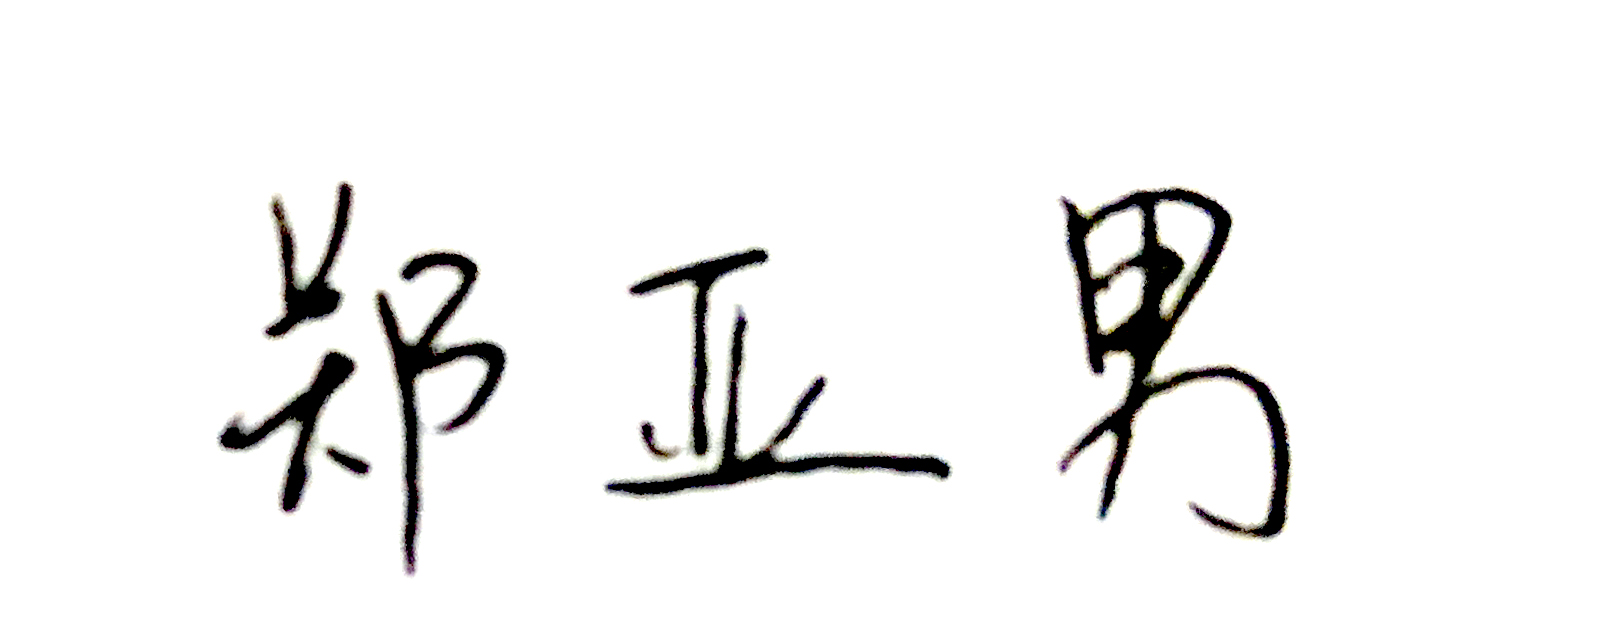 郑亚男